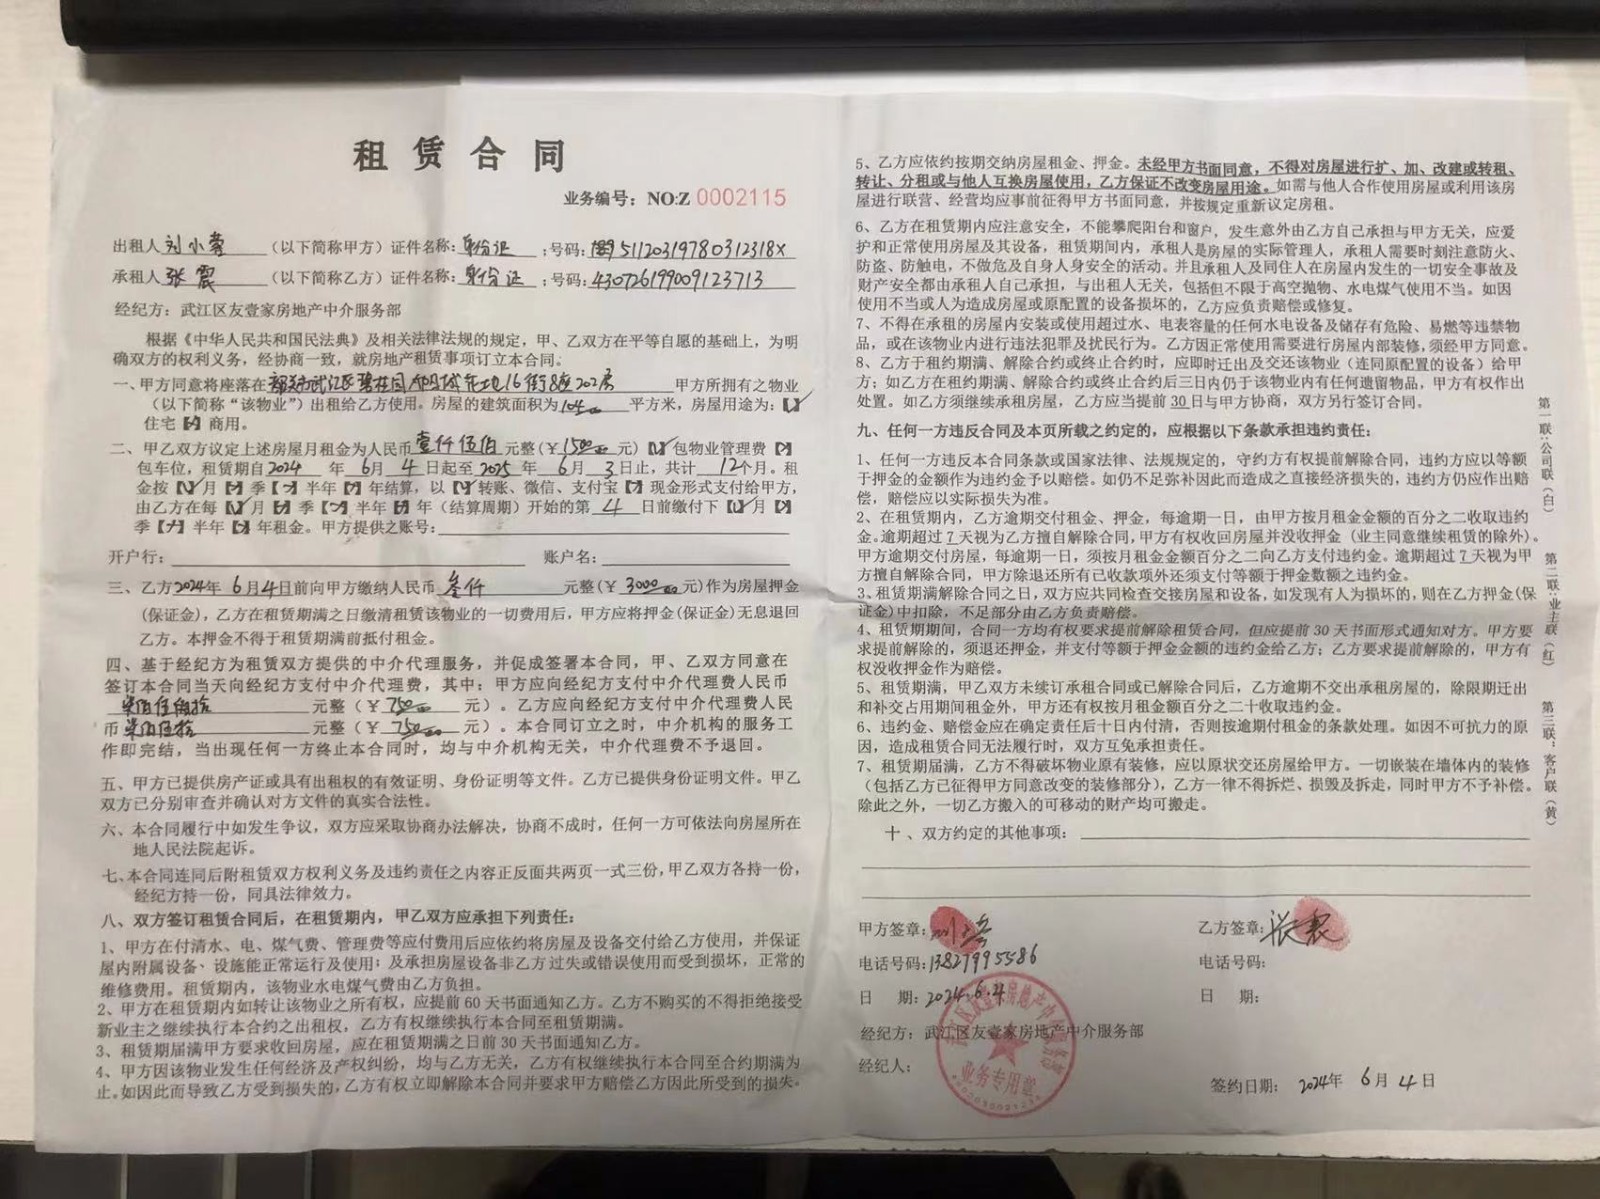 租赁合同
业务编号：NO:Z 0002115
出租人 刘小蓉 （以下简称甲方）证件名称：身份证 ；号码：51120319780312318X
承租人 张震 （以下简称乙方）证件名称：身份证 ；号码：430726199009123713
经纪方：武江区友壹家房地产中介服务部
根据《中华人民共和国民法典》及相关法律法规的规定，甲、乙双方在平等自愿的基础上，为明
确双方的权利义务，经协商一致，就房地产租赁事项订立本合同。
一、甲方同意将座落在韶关市武江区碧桂园 16街8座202房 甲方所拥有之物业
（以下简称“该物业”）出租给乙方使用。房屋的建筑面积为104 平方米，房屋用途为：【✓】
住宅【×】商用。
二、甲乙双方议定上述房屋月租金为人民币壹仟伍佰 元整（￥1500 元）【✓】包物业管理费【×】
包车位，租赁期自2024 年 6月 4 日起至2025 年 6月 3日止，共计 12个月。租
金按【✓】月【×】季【×】半年【×】年结算，以【✓】转账、微信、支付宝【×】现金形式支付给甲方，
由乙方在每【✓】月【×】季【×】半年【×】年（结算周期）开始的第 4 日前缴付下【✓】月【×】
季【×】半年【×】年租金。甲方提供之账号：
开户行： 账户名：
三、乙方2024年 6月4日前向甲方缴纳人民币 叁仟 元整（￥ 3000 元）作为房屋押金
（保证金），乙方在租赁期满之日缴清租赁该物业的一切费用后，甲方应将押金（保证金）无息退回
乙方。本押金不得于租赁期满前抵付租金。
四、基于经纪方为租赁双方提供的中介代理服务，并促成签署本合同，甲、乙双方同意在
签订本合同当天向经纪方支付中介代理费，其中：甲方应向经纪方支付中介代理费人民币
柒佰伍拾 元整（￥ 750 元）。乙方应向经纪方支付中介代理费人民
币 柒佰伍拾 元整（￥ 750 元）。本合同订立之时，中介机构的服务工
作即完结，当出现任何一方终止本合同时，均与中介机构无关，中介代理费不予退回。
五、甲方已提供房产证或具有出租权的有效证明、身份证明等文件。乙方已提供身份证明文件。甲乙
双方已分别审查并确认对方文件的真实合法性。
六、本合同履行中如发生争议，双方应采取协商办法解决，协商不成时，任何一方可依法向房屋所在
地人民法院起诉。
七、本合同连同后附租赁双方权利义务及违约责任之内容正反面共两页一式三份，甲乙双方各持一份，
经纪方持一份，同具法律效力。
八、双方签订租赁合同后，在租赁期内，甲乙双方应承担下列责任：
1、甲方在付清水、电、煤气费、管理费等应付费用后应依约将房屋及设备交付给乙方使用，并保证
屋内附属设备、设施能正常运行及使用；及承担房屋设备非乙方过失或错误使用而受到损坏，正常的
维修费用。租赁期内，该物业水电煤气费由乙方负担。
2、甲方在租赁期内如转让该物业之所有权，应提前60天书面通知乙方。乙方不购买的不得拒绝接受
新业主之继续执行本合约之出租权，乙方有权继续执行本合同至租赁期满。
3、租赁期届满甲方要求收回房屋，应在租赁期满之日前30天书面通知乙方。
4、甲方因该物业发生任何经济及产权纠纷，均与乙方无关，乙方有权继续执行本合同至合约期满为
止。如因此而导致乙方受到损失的，乙方有权立即解除本合同并要求甲方赔偿乙方因此所受到的损失。
5、乙方应依约按期交纳房屋租金、押金。未经甲方书面同意，不得对房屋进行扩、加、改建或转租、
转让、分租或与他人互换房屋使用，乙方保证不改变房屋用途。如需与他人合作使用房屋或利用该房
屋进行联营、经营均应事前征得甲方书面同意，并按规定重新议定房租。
6、乙方在租赁期内应注意安全，不能攀爬阳台和窗户，发生意外由乙方自己承担与甲方无关，应爱
护和正常使用房屋及其设备，租赁期间内，承租人是房屋的实际管理人，承租人需要时刻注意防火、
防盗、防触电，不做危及自身人身安全的活动。并且承租人及同住人在房屋内发生的一切安全事故及
财产安全都由承租人自己承担，与出租人无关，包括但不限于高空抛物、水电煤气使用不当。如因
使用不当或人为造成房屋或原配置的设备损坏的，乙方应负责赔偿或修复。
7、不得在承租的房屋内安装或使用超过水、电表容量的任何水电设备及储存有危险、易燃等违禁物
品，或在该物业内进行违法犯罪及扰民行为。乙方因正常使用需要进行房屋内部装修，须经甲方同意。
8、乙方于租约期满、解除合约或终止合约时，应即时迁出及交还该物业（连同原配置的设备）给甲
方；如乙方在租约期满、解除合约或终止合约后三日内仍于该物业内有任何遗留物品，甲方有权作出
处置。如乙方须继续承租房屋，乙方应当提前30日与甲方协商，双方另行签订合同。
九、任何一方违反合同及本页所载之约定的，应根据以下条款承担违约责任：
1、任何一方违反本合同条款或国家法律、法规规定的，守约方有权提前解除合同，违约方应以等额
于押金的金额作为违约金予以赔偿。如仍不足弥补因此而造成之直接经济损失的，违约方仍应作出赔
偿，赔偿应以实际损失为准。
2、在租赁期内，乙方逾期交付租金、押金，每逾期一日，由甲方按月租金金额的百分之二收取违约
金。逾期超过7天视为乙方擅自解除合同，甲方有权收回房屋并没收押金（业主同意继续租赁的除外）。
甲方逾期交付房屋，每逾期一日，须按月租金金额百分之二向乙方支付违约金。逾期超过7天视为甲
方擅自解除合同，甲方除退还所有已收款项外还须支付等额于押金数额之违约金。
3、租赁期满解除合同之日，双方应共同检查交接房屋和设备，如发现有人为损坏的，则在乙方押金（保
证金）中扣除，不足部分由乙方负责赔偿。
4、租赁期期间，合同一方均有权要求提前解除租赁合同，但应提前30天书面形式通知对方。甲方要
求提前解除的，须退还押金，并支付等额于押金金额的违约金给乙方；乙方要求提前解除的，甲方有
权没收押金作为赔偿。
5、租赁期满，甲乙双方未续订承租合同或已解除合同后，乙方逾期不交出承租房屋的，除限期迁出
和补交占用期间租金外，甲方还有权按月租金额百分之二十收取违约金。
6、违约金、赔偿金应在确定责任后十日内付清，否则按逾期付租金的条款处理。如因不可抗力的原
因，造成租赁合同无法履行时，双方互免承担责任。
7、租赁期届满，乙方不得破坏物业原有装修，应以原状交还房屋给甲方。一切嵌装在墙体内的装修
（包括乙方已征得甲方同意改变的装修部分），乙方一律不得拆烂、损毁及拆走，同时甲方不予补偿。
除此之外，一切乙方搬入的可移动的财产均可搬走。
十、双方约定的其他事项：
甲方签章： 乙方签章：张震
电话号码：13827995586 电话号码：
日 期：2024.6.4 日 期：
经纪方：武江区友壹家房地产中介服务部
经纪人：
签约日期： 2024年 6月4日
业务专用章
第一联：公司联（白）
第二联：业主联（红）
第三联：客户联（黄）